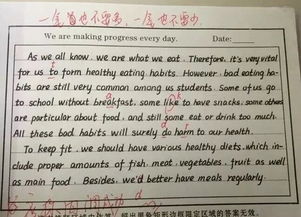 一字首也不需多,一字也不需少.
We are making progress every day. Date:
As we all know, we are what we eat. Therefore, it's very vital
for us to form healthy eating habits. However, bad eating ha-
bits are still very common among us students. Some of us go
to school without breakfast, some like to have snacks, some others
are particular about food, and still some eat or drink too much.
All these bad habits will surely do harm to our health.
To keep fit, we should have various healthy diets, which in-
clude proper amounts of fish, meat, vegetables, fruit as well
as main food. Besides, we'd better have meals regularly.